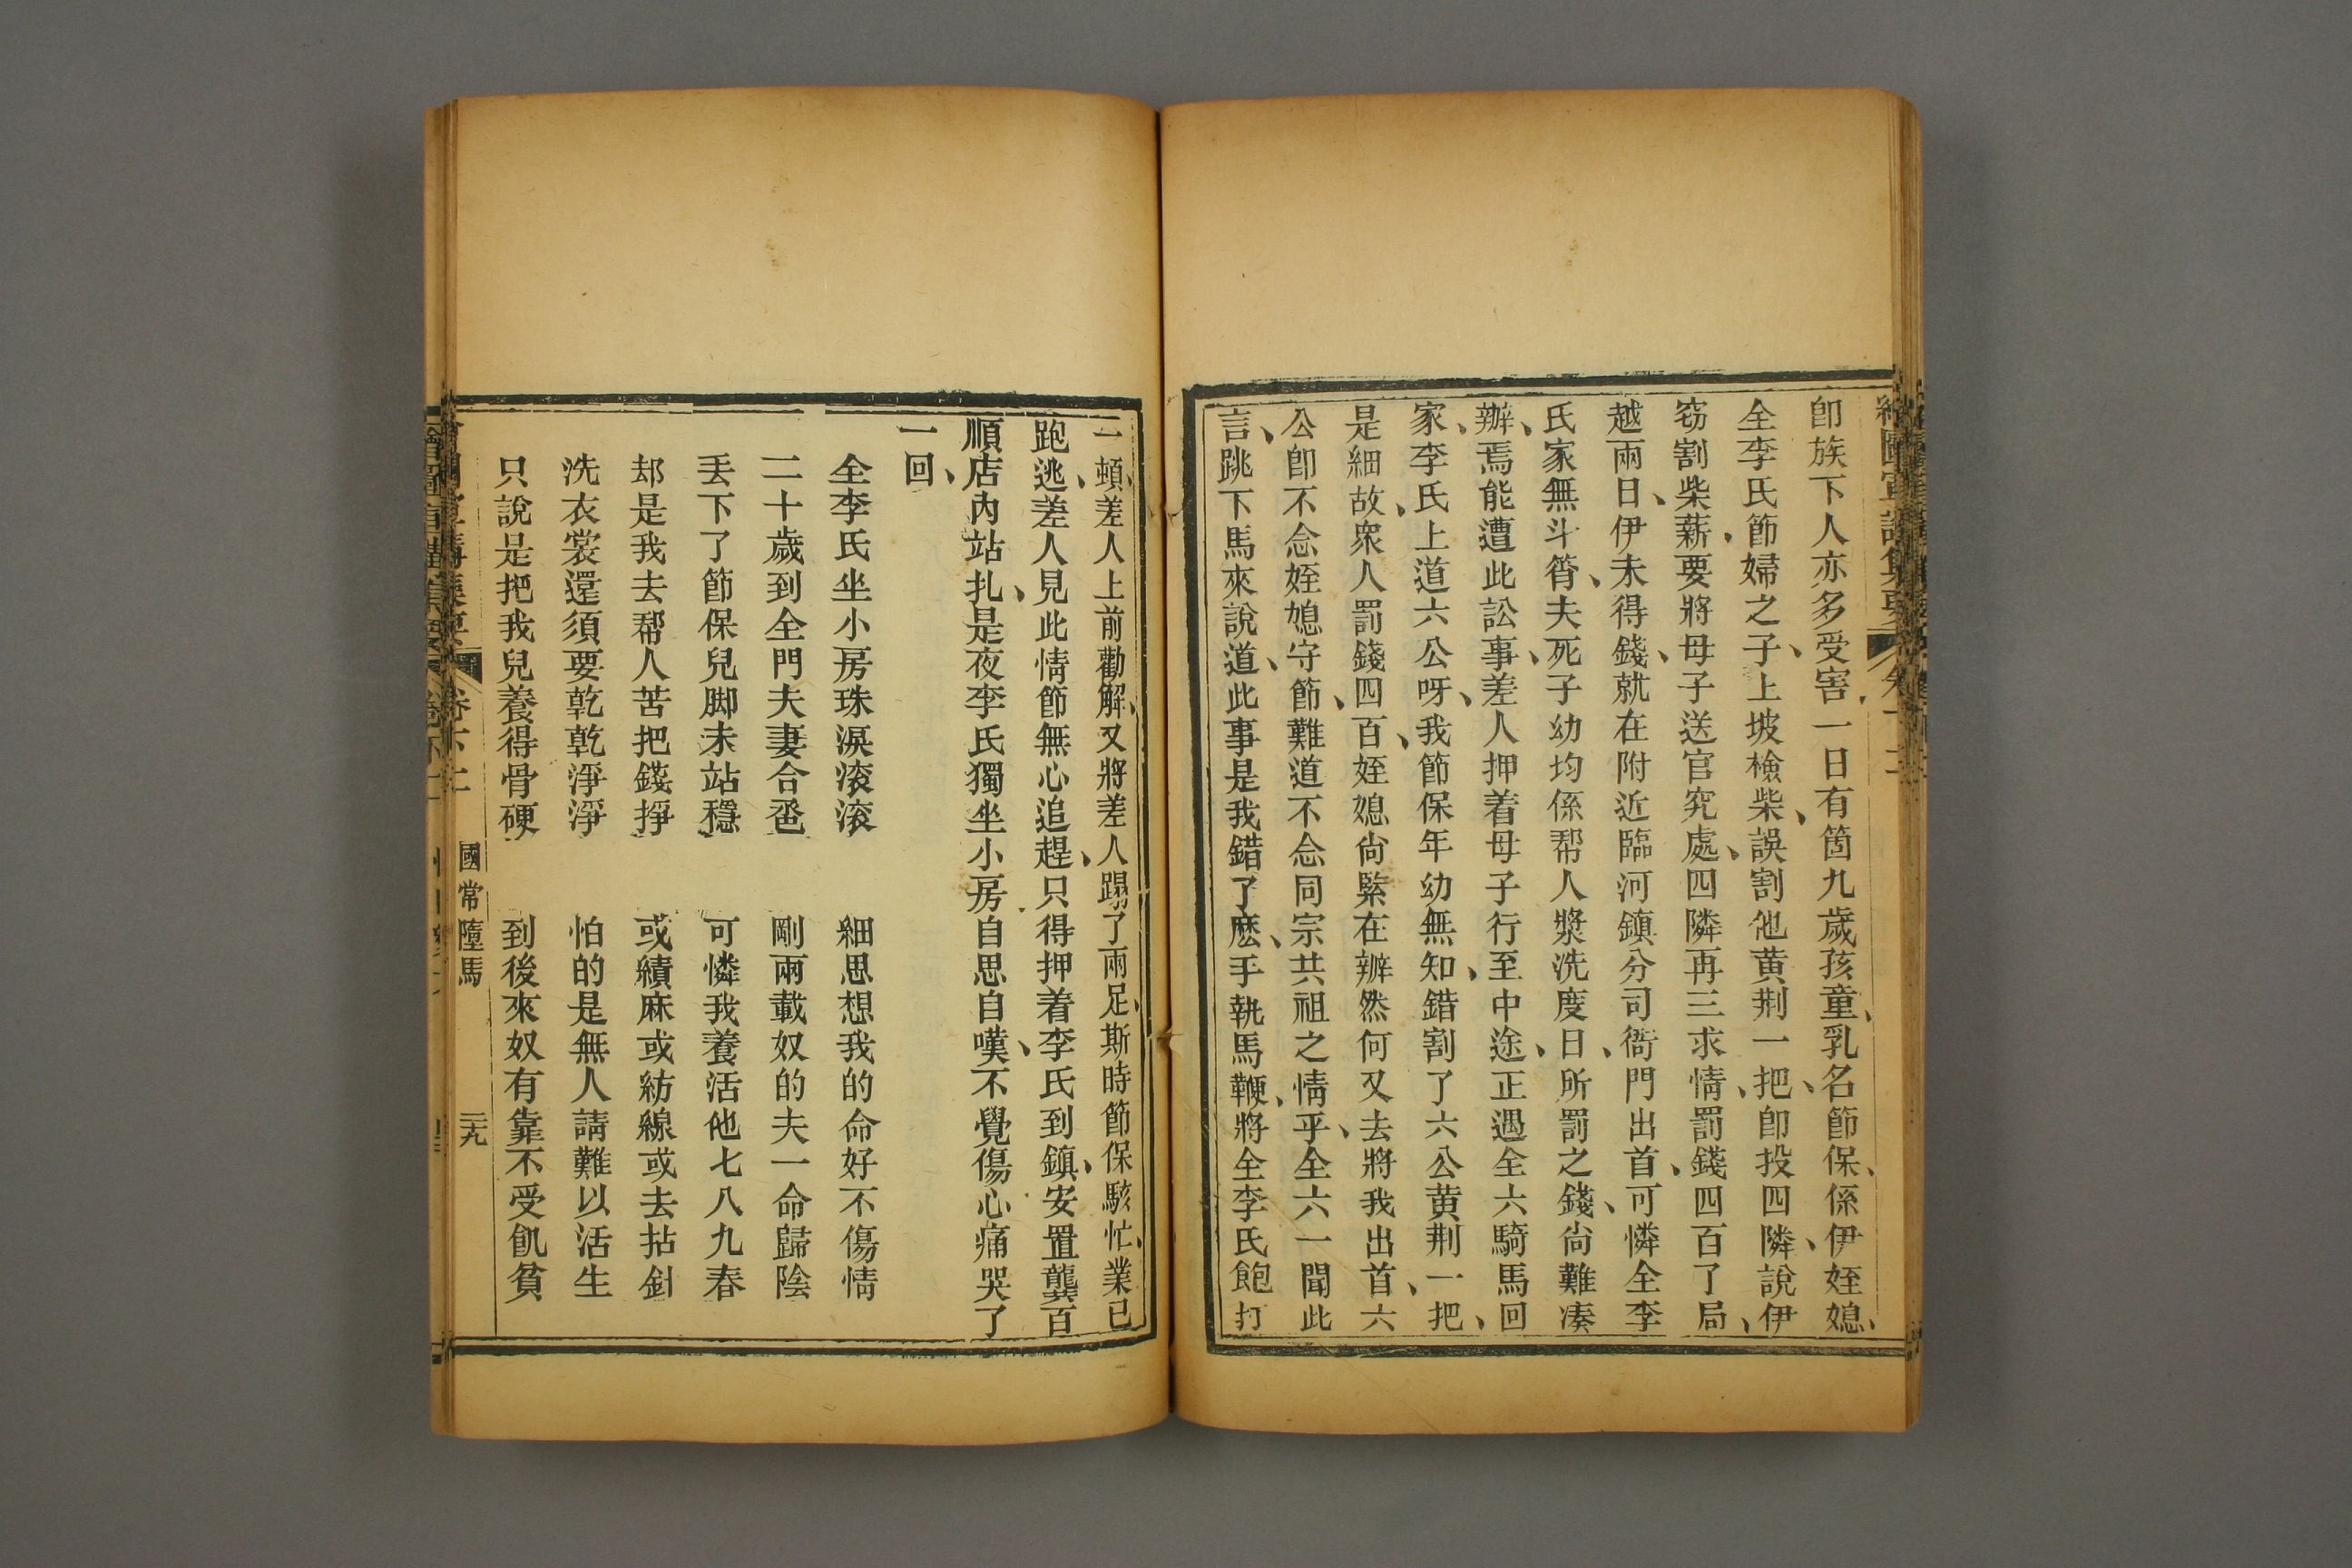 即族下人亦多受害一日有箇九歲孩童、乳名節保、係伊姪媳、
全李氏節婦之子、上坡檢柴、誤割他黄荆一把、即投四隣、說伊
窃割柴薪、要將母子送官究處、四隣再三求情、罰錢四百了局、
越兩日、伊未得錢、就在附近臨河鎮分司衙門出首、可憐全李
氏家無斗筲、夫死子幼均係帮人漿洗度日、所罰之錢、尙難凑
辦、焉能遭此訟事、差人押着母子行至中途、正遇全六騎馬回
家、李氏上道六公呀、我節保年幼無知、錯割了六公黄荆一把、
是細故、衆人罰錢四百、姪媳尙緊在辦然何又去將我出首、六
公卽不念姪媳守節、難道不念同宗共祖之情乎、全六一聞此
言、跳下馬來說道、此事是我錯了麽、手執馬鞭、將全李氏飽打
一頓、差人上前勸解、又將差人踢了兩足、斯時節保駭忙、業已
跑逃、差人見此情節無心追趕、只得押着李氏到鎮、安置龔百
順店內站扎、是夜李氏獨坐小房自思自嘆、不覺傷心痛哭了
一回、
全李氏坐小房珠淚滚滚 細思想我的命好不傷情
二十歲到全門夫妻合卺 剛兩載奴的夫一命歸陰
丢下了節保兒脚未站穩 可憐我養活他七八九春
却是我去帮人苦把錢掙 或績麻或紡線或去拈針
洗衣裳還須要乾乾淨淨 怕的是無人請難以活生
只說是把我兒養得骨硬 到後來奴有靠不受飢貧
國常墮馬
三九